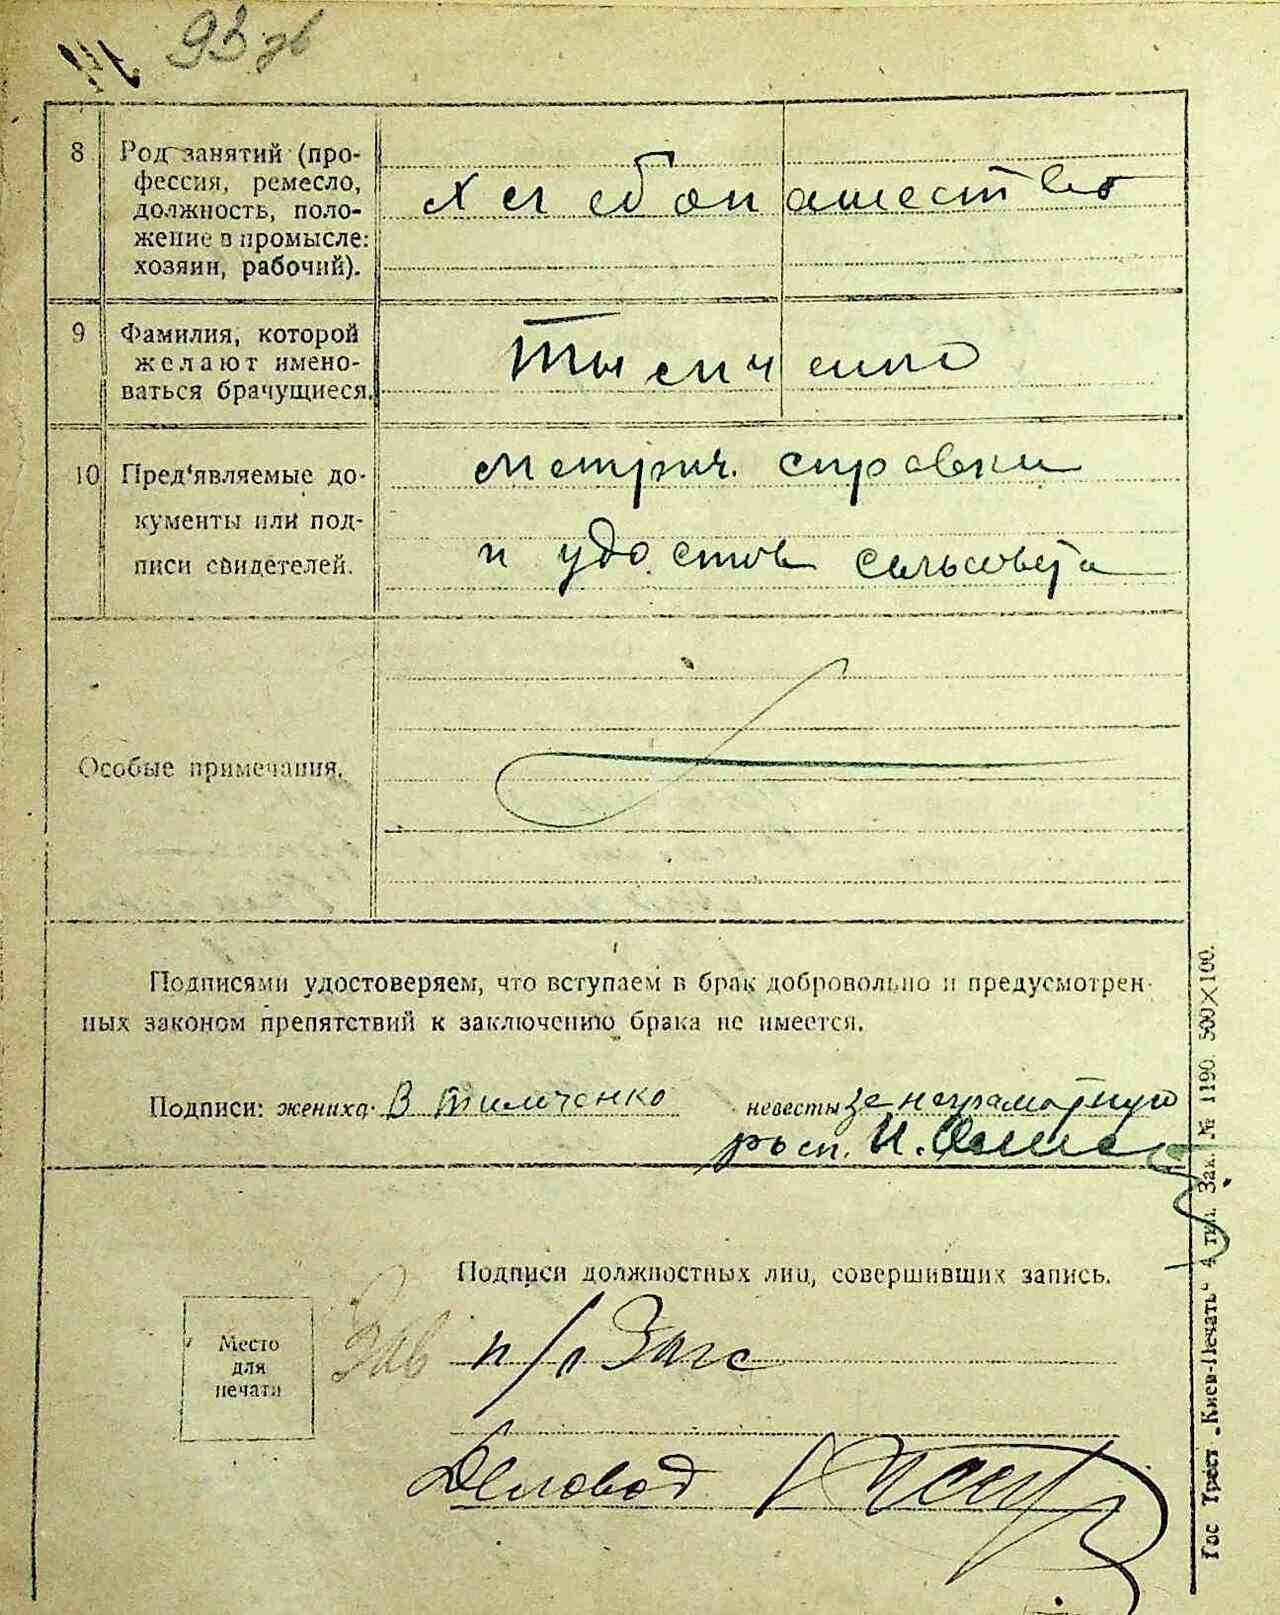 93 зв
8 Род занятий (про-
фессия, ремесло,
должность, поло-
жение в промысле:
хозяин, рабочий).
Хлебопашество
9 Фамилия, которой
желают имено-
ваться брачущиеся.
10 Пред'являемые до-
кументы или под-
писи свидетелей.
метрич. справки
и удостов сельсовета
Особые примечания.
Подписями удостоверяем, что вступаем в брак добровольно и предусмотрен-
ных законом препятствий к заключению брака не имеется.
Подписи: жениха В Тимченко невесты За неграмотную
росп. И.
Подписи должностных лиц, совершивших запись.
Место
для
печати
Зав п/п Загс
Деловод
Гос Трест „Киев-Печать" 4 тип. Зак. № 1190. 500×100.